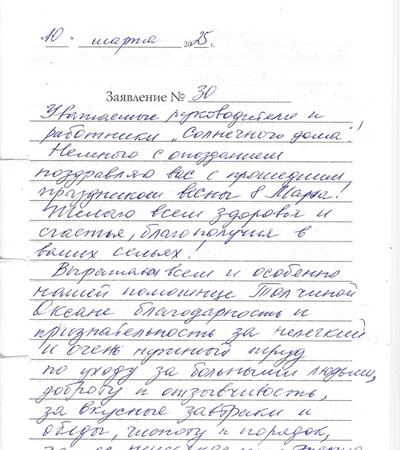 "10" марта 2025 г.
Заявление № 30
Уважаемые руководители и
работники „Солнечного дома"!
Немного с опозданием
поздравляю вас с прошедшим
праздником весны 8 Марта!
Желаю всем здоровья и
счастья, благополучия в
ваших семьях!
Выражаю всем и особенно
нашей помощнице Толчиной
Оксане благодарность и
признательность за нелегкий
и очень нужный труд
по уходу за больными людьми,
доброту и отзывчивость,
за вкусные завтраки и
обеды, чистоту и порядок,
за